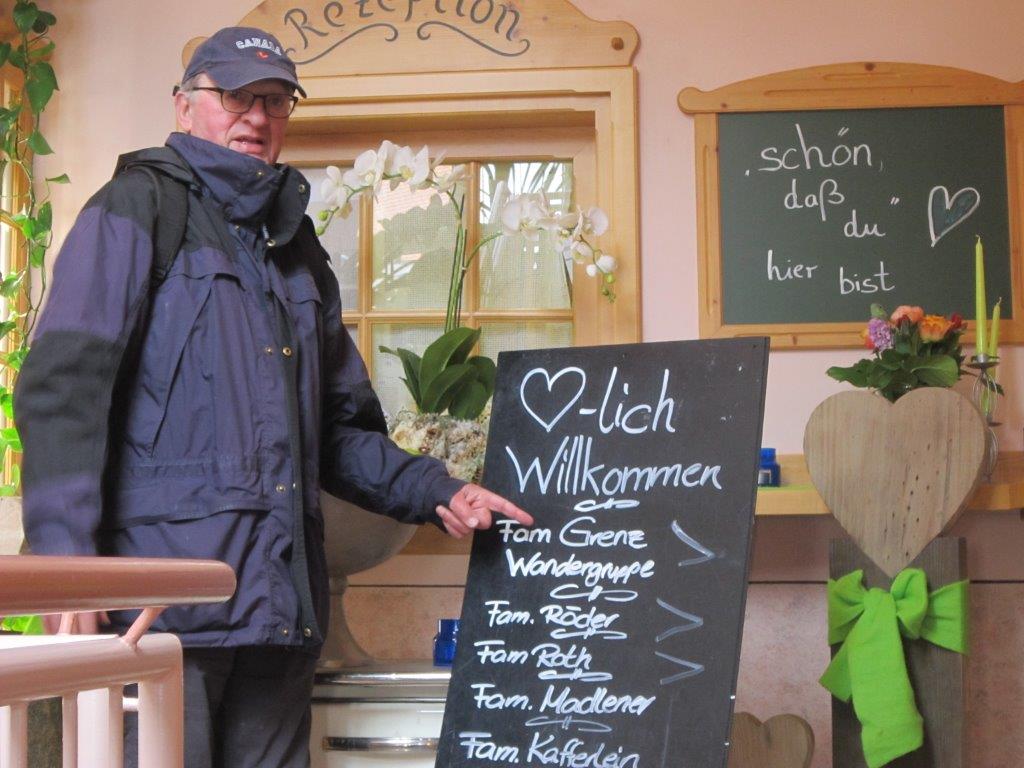 Rezeption
CANADA
„schön,
daß
du“
hier bist
♡-lich
Willkommen
Fam Grenz
Wandergruppe
Fam. Röder
Fam. Roth
Fam. Madlener
Fam. Kafferlein